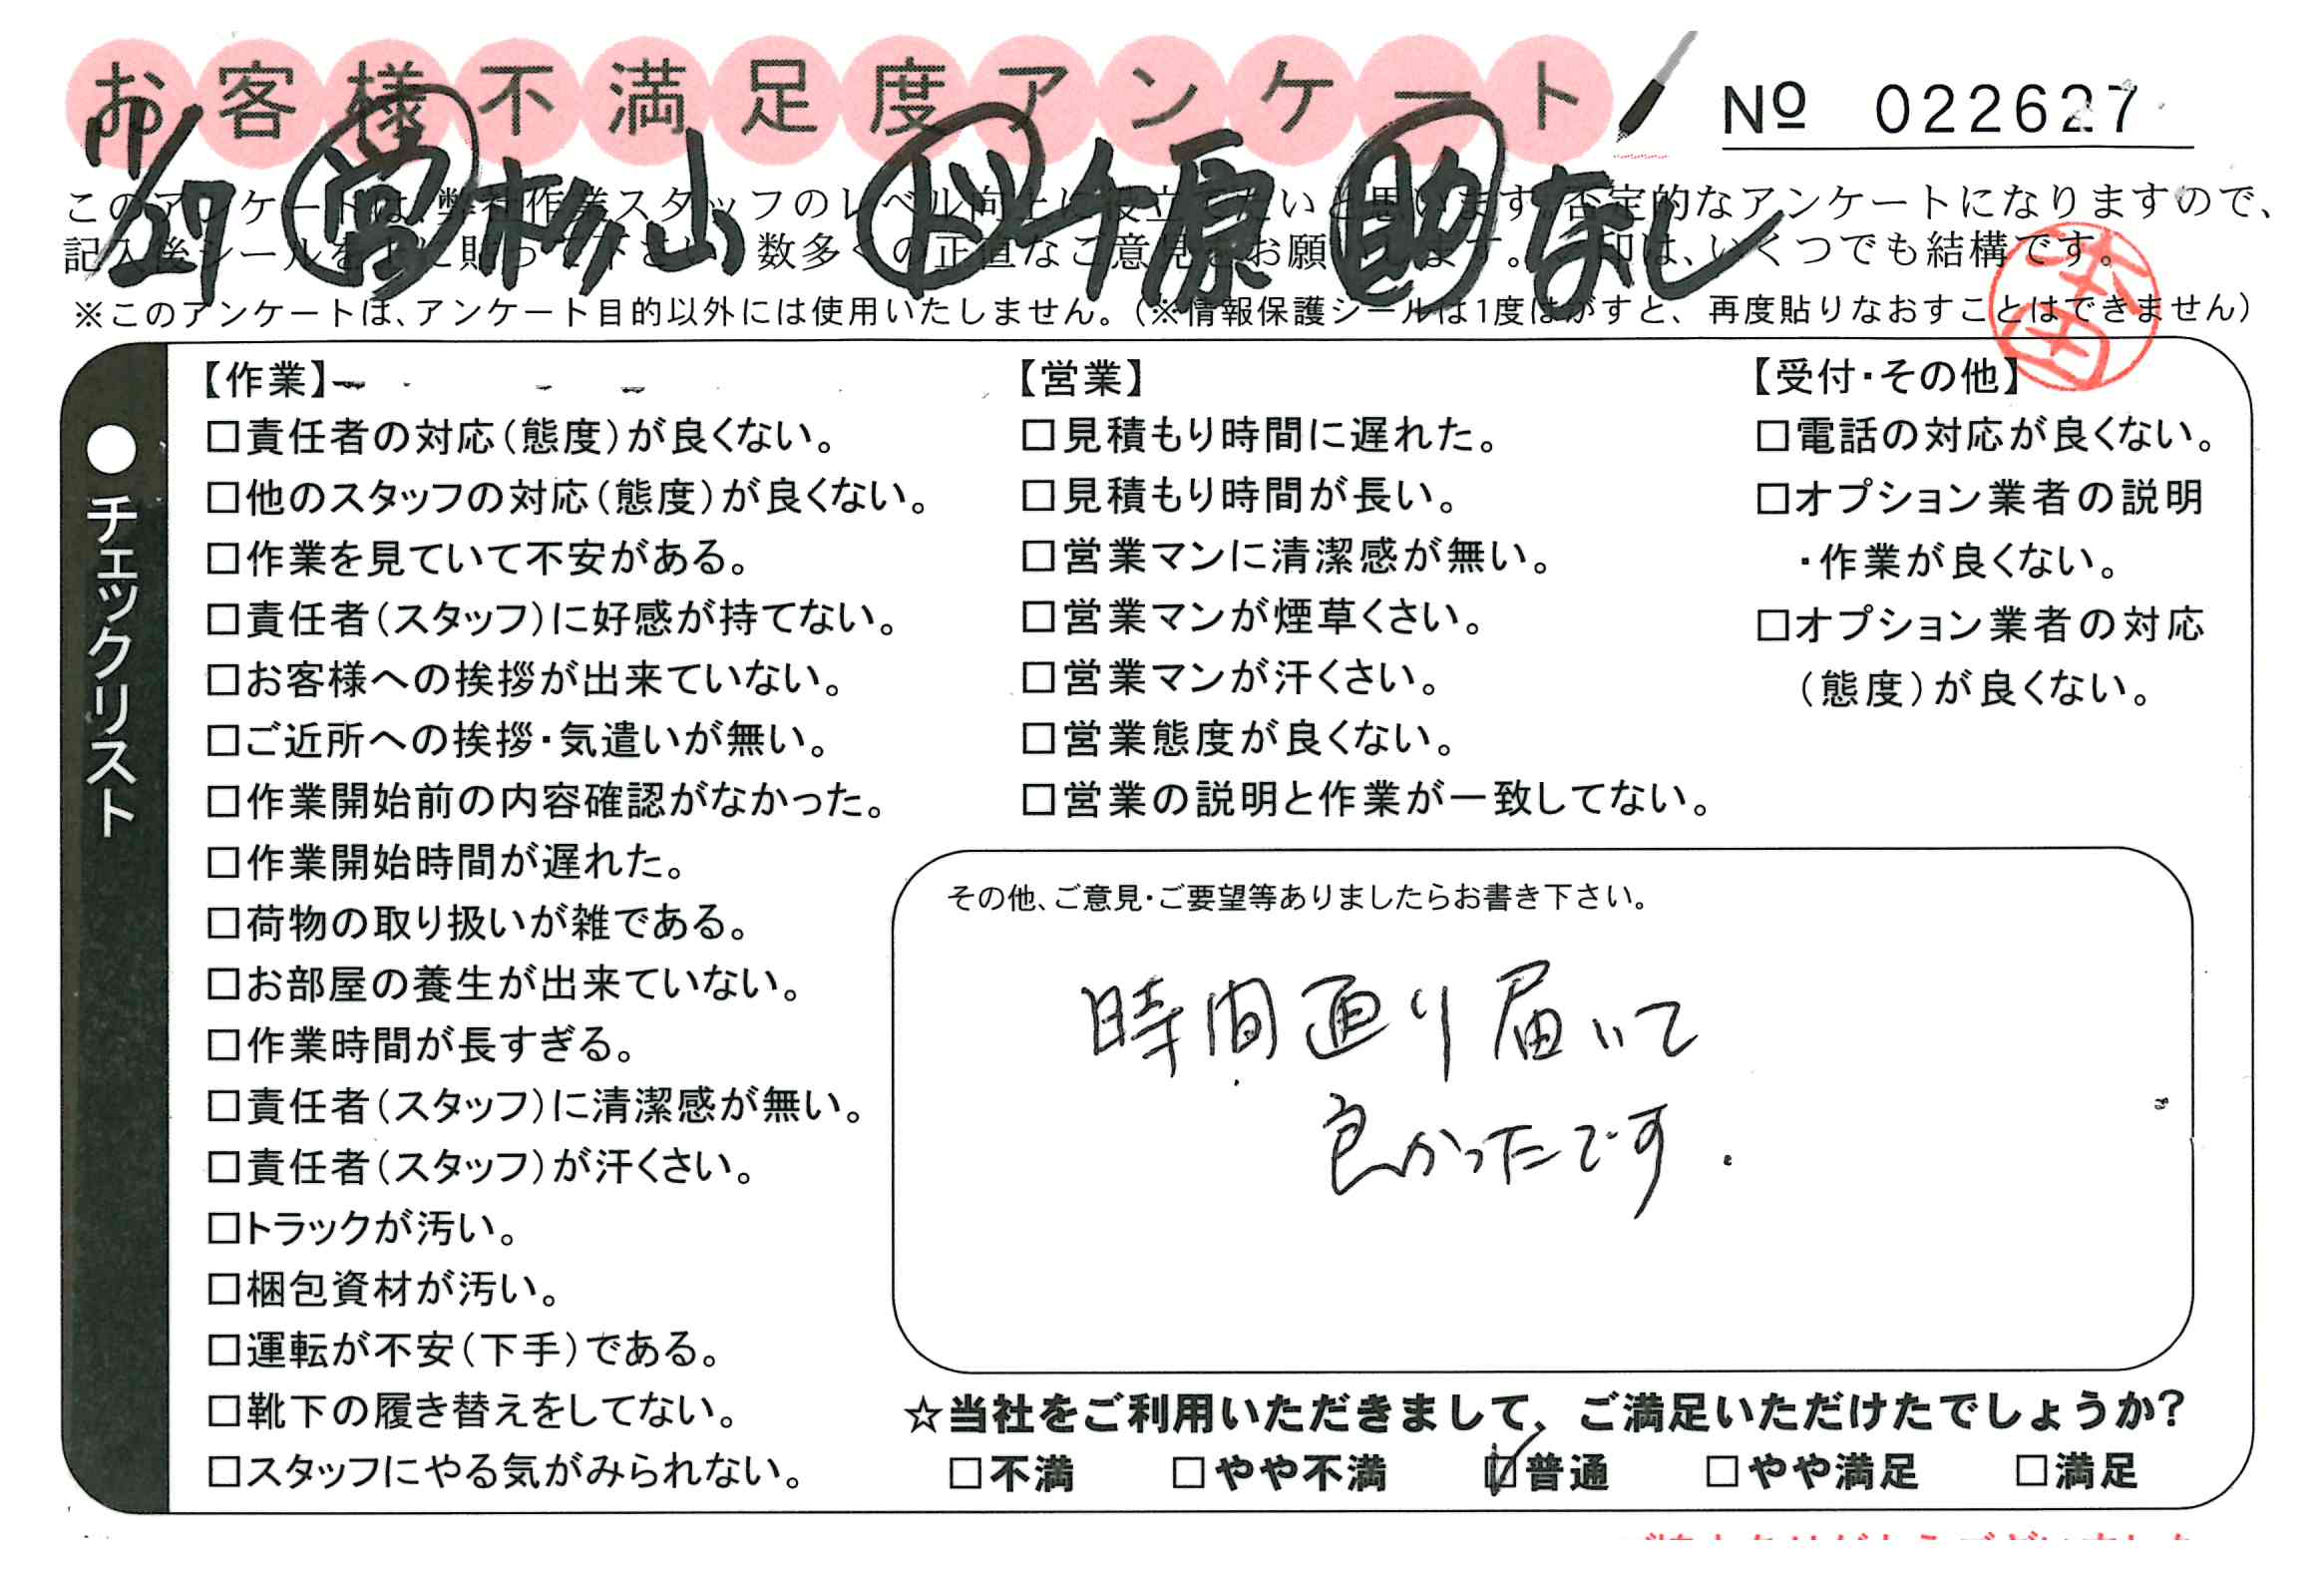 お客様不満足度アンケート
№ 022627
11/27 ㊢杉山 ㋣千原 ㊐なし
このアンケートは、弊社作業スタッフのレベル向上に役立てたいと思います。否定的なアンケートになりますので、
記入後シールを上に貼って下さい。数多くの正直なご意見をお願いします。✓印は、いくつでも結構です。
※このアンケートは、アンケート目的以外には使用いたしません。(※情報保護シールは1度はがすと、再度貼りなおすことはできません)
本田
●チェックリスト
【作業】
□責任者の対応(態度)が良くない。
□他のスタッフの対応(態度)が良くない。
□作業を見ていて不安がある。
□責任者(スタッフ)に好感が持てない。
□お客様への挨拶が出来ていない。
□ご近所への挨拶・気遣いが無い。
□作業開始前の内容確認がなかった。
□作業開始時間が遅れた。
□荷物の取り扱いが雑である。
□お部屋の養生が出来ていない。
□作業時間が長すぎる。
□責任者(スタッフ)に清潔感が無い。
□責任者(スタッフ)が汗くさい。
□トラックが汚い。
□梱包資材が汚い。
□運転が不安(下手)である。
□靴下の履き替えをしてない。
□スタッフにやる気がみられない。
【営業】
□見積もり時間に遅れた。
□見積もり時間が長い。
□営業マンに清潔感が無い。
□営業マンが煙草くさい。
□営業マンが汗くさい。
□営業態度が良くない。
□営業の説明と作業が一致してない。
【受付・その他】
□電話の対応が良くない。
□オプション業者の説明
・作業が良くない。
□オプション業者の対応
(態度)が良くない。
その他、ご意見・ご要望等ありましたらお書き下さい。
時間通り届いて
良かったです.
☆当社をご利用いただきまして、ご満足いただけたでしょうか?
□不満 □やや不満 ☑普通 □やや満足 □満足